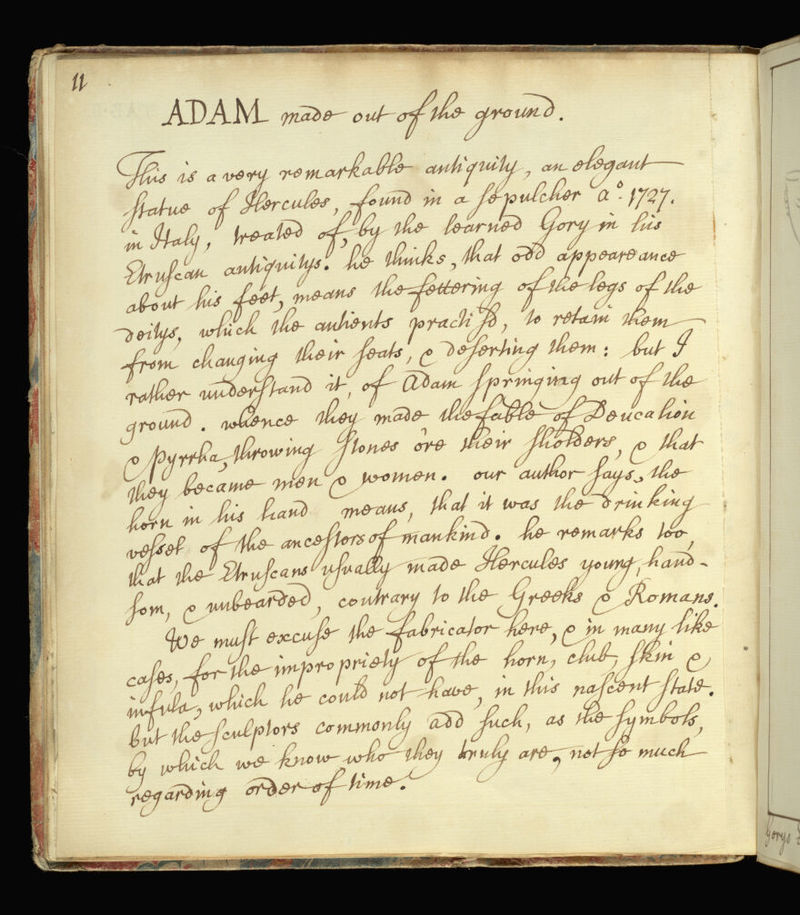 11
ADAM made out of the ground.
This is a very remarkable antiquity, an elegant
statue of Hercules, found in a sepulcher aº. 1727.
in Italy, treated of, by the learned Gory in his
Etruscan antiquitys. he thinks, that odd appeareance
about his feet, means the fettering of the legs of the
deitys, which the antients practisd, to retain them
from changing their seats, & deserting them: but I
rather understand it, of Adam springing out of the
ground. whence they made the fable of Deucalion
& Pyrrha, throwing stones o're their sholders, & that
they became men & women. our author says, the
horn in his hand means, that it was the drinking
vessel of the ancestors of mankind. he remarks too,
that the Etruscans usually made Hercules young, hand-
som, & unbearded, contrary to the Greeks & Romans.
We must excuse the fabricator here, & in many like
cases, for the impropriety of the horn, club, skin &
infula, which he could not have, in this nascent state.
but the sculptors commonly add such, as the symbols,
by which we know who they truly are, not so much
regarding order of time.
Gorys